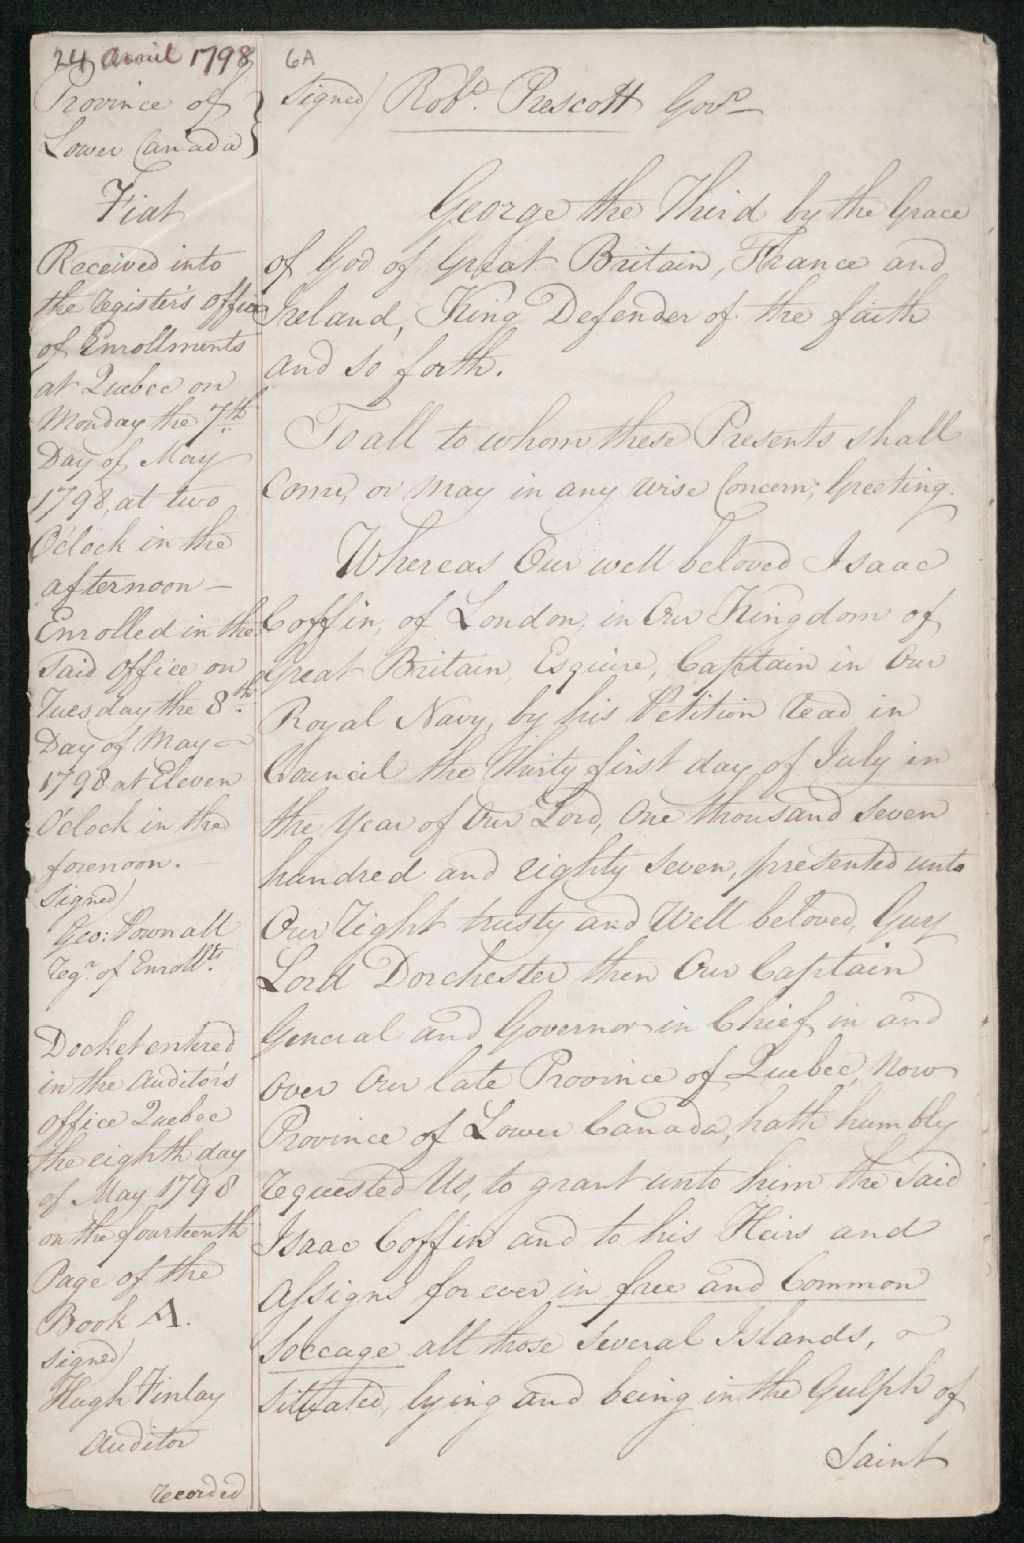 24 avril 1798
Province of
Lower Canada
Fiat
Received into
the Register's office
of Enrollments
at Quebec on
Monday the 7th
Day of May
1798, at two
O'Clock in the
afternoon —
Enrolled in the
Said office on
Tuesday the 8th
Day of May
1798 at Eleven
O'Clock in the
forenoon.
signed)
Geo: Pownall
Regr of Enrollts
Docket entered
in the Auditor's
office Quebec
the eighth day
of May 1798
on the fourteenth
Page of the
Book A.
signed)
Hugh Finlay
Auditor
recorded
6A
Signed) Robt. Prescott Govr
George the Third by the Grace
of God of Great Britain, France and
Ireland, King Defender of the faith
and so forth.
To all to whom these Presents shall
Come, or may in any wise Concern; Greeting.
Whereas Our well beloved Isaac
Coffin, of London, in Our Kingdom of
Great Britain, Esquire, Captain in Our
Royal Navy, by his Petition read in
Council the thirty first day of July in
the Year of Our Lord, One thousand seven
hundred and eighty seven, presented unto
Our Right trusty and Well beloved, Guy
Lord Dorchester then Our Captain
General and Governor in Chief in and
over Our late Province of Quebec, now
Province of Lower Canada, hath humbly
requested Us, to grant unto him the said
Isaac Coffin and to his Heirs and
Assigns for ever in free and Common
Soccage all those several Islands,
Situated, lying and being in the Gulph of
Saint